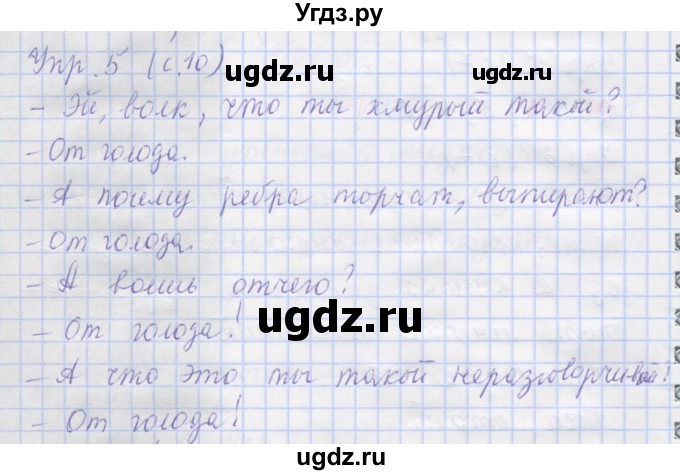 Угдз.ру
Упр. 5 (с. 10)
ugdz.ru ugdz.ru
- Эй, волк, что ты хмурый такой?
- От голода.
- А почему рёбра торчат, выпирают?
- От голода.
ugdz.ru
- А воешь отчего?
- От голода!
ugdz.ru
- А что это ты такой неразговорчивый?
- От голода!
ugdz.ru